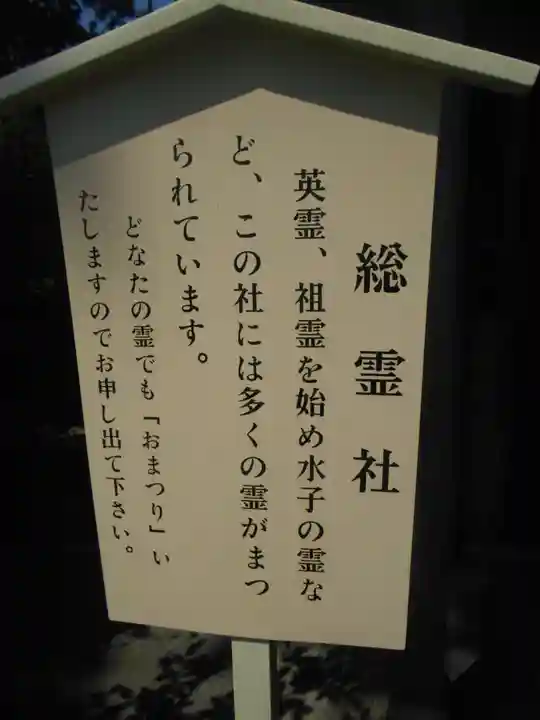 総霊社
英霊、祖霊を始め水子の霊な
ど、この社には多くの霊がまつ
られています。
どなたの霊でも「おまつり」い
たしますのでお申し出て下さい。